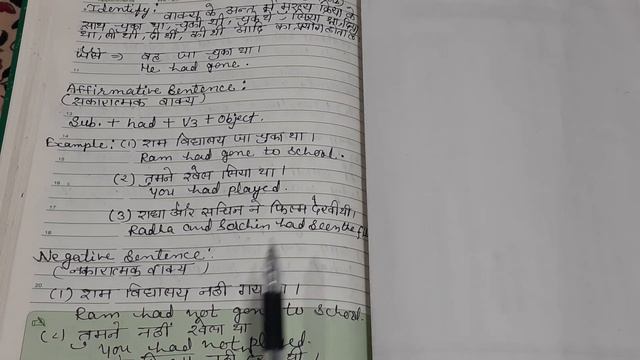 Identify: वाक्य के अन्त में मुख्य क्रिया के
साथ चुका था, चुकी थी, चुके थे, लिया था, दिया
था, ली थी, दी थी, की थी आदि का प्रयोग होता है
जैसे ⇒ वह जा चुका था।
He had gone.
Affirmative Sentence:
(सकारात्मक वाक्य)
Sub. + had + V3 + object.
Example: (1) राम विद्यालय जा चुका था।
Ram had gone to school.
(2) तुमने खेल लिया था।
You had played.
(3) राधा और सचिन ने फिल्म देखी थी।
Radha and Sachin had seen the
Negative Sentence:
(नकारात्मक वाक्य)
(1) राम विद्यालय नहीं
Ram had not gone to school.
तुमने नहीं खेला था
You had not played.